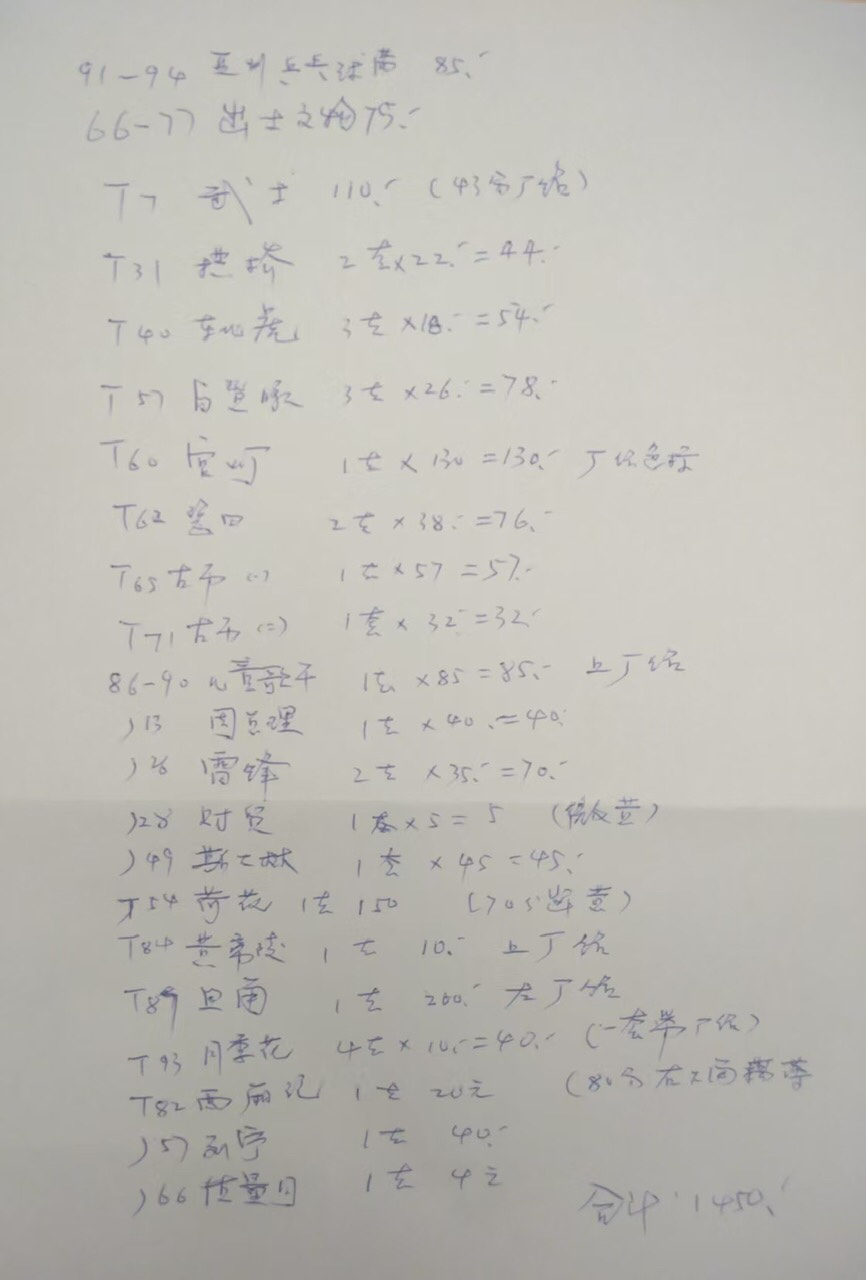 91-94 亚州乒乓球赛 85.-
66-77 出土文物75.-
T7 武士 110.- (43分厂铭)
T31 拱桥 2套×22.-=44.-
T40 东北虎 3套×18.-=54.-
T57 白暨豚 3套×26.-=78.-
T60 宫灯 1套×130=130.- 厂铭色标
T62 瓷 2套×38.-=76.-
T65 古币(一) 1套×57=57.-
T71 古币(二) 1套×32.-=32.-
86-90 儿童歌午 1套×85=85.- 上厂铭
J13 周总理 1套×40.-=40.-
J26 雷锋 2套×35.-=70.-
J28 财贸 1套×5=5 (微黄)
J49 斯大林 1套×45=45.-
T54 荷花 1套 150 (70分 黄)
T84 黄帝陵 1套 10.- 上厂铭
T89 仕女 1套 200.- 左厂铭
T93 月季花 4套×10.-=40.- (一套带厂铭)
T82 西厢记 1套 20元 (80分右
J57 列宁 1套 40.-
J66 质量月 1套 4元
合计:1450.-